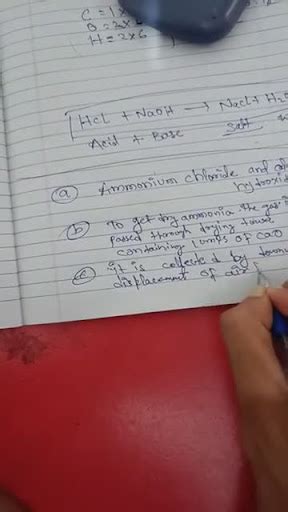 C = 1 x
O = 3 x
H = 2 x 6
HCl + NaOH → NaCl + H2O
Acid + Base salt
(a) Ammonium chloride and
hydroxide
(b) To get dry ammonia the gas is
passed through drying tower
containing lumps of CaO
(c) it is collected by
displacement of air